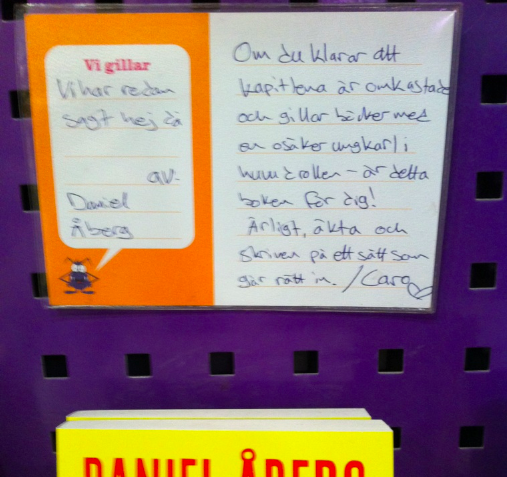 Vi gillar
Vi har redan
sagt hej då
av:
Daniel
Åberg
Om du klarar att
kapitlena är omkastade
och gillar böcker med
en osäker ungkarl i
huvudrollen - är detta
boken för dig!
Ärligt, äkta och
skriven på ett sätt som
går rätt in. /Caro
DANIEL ÅBERG